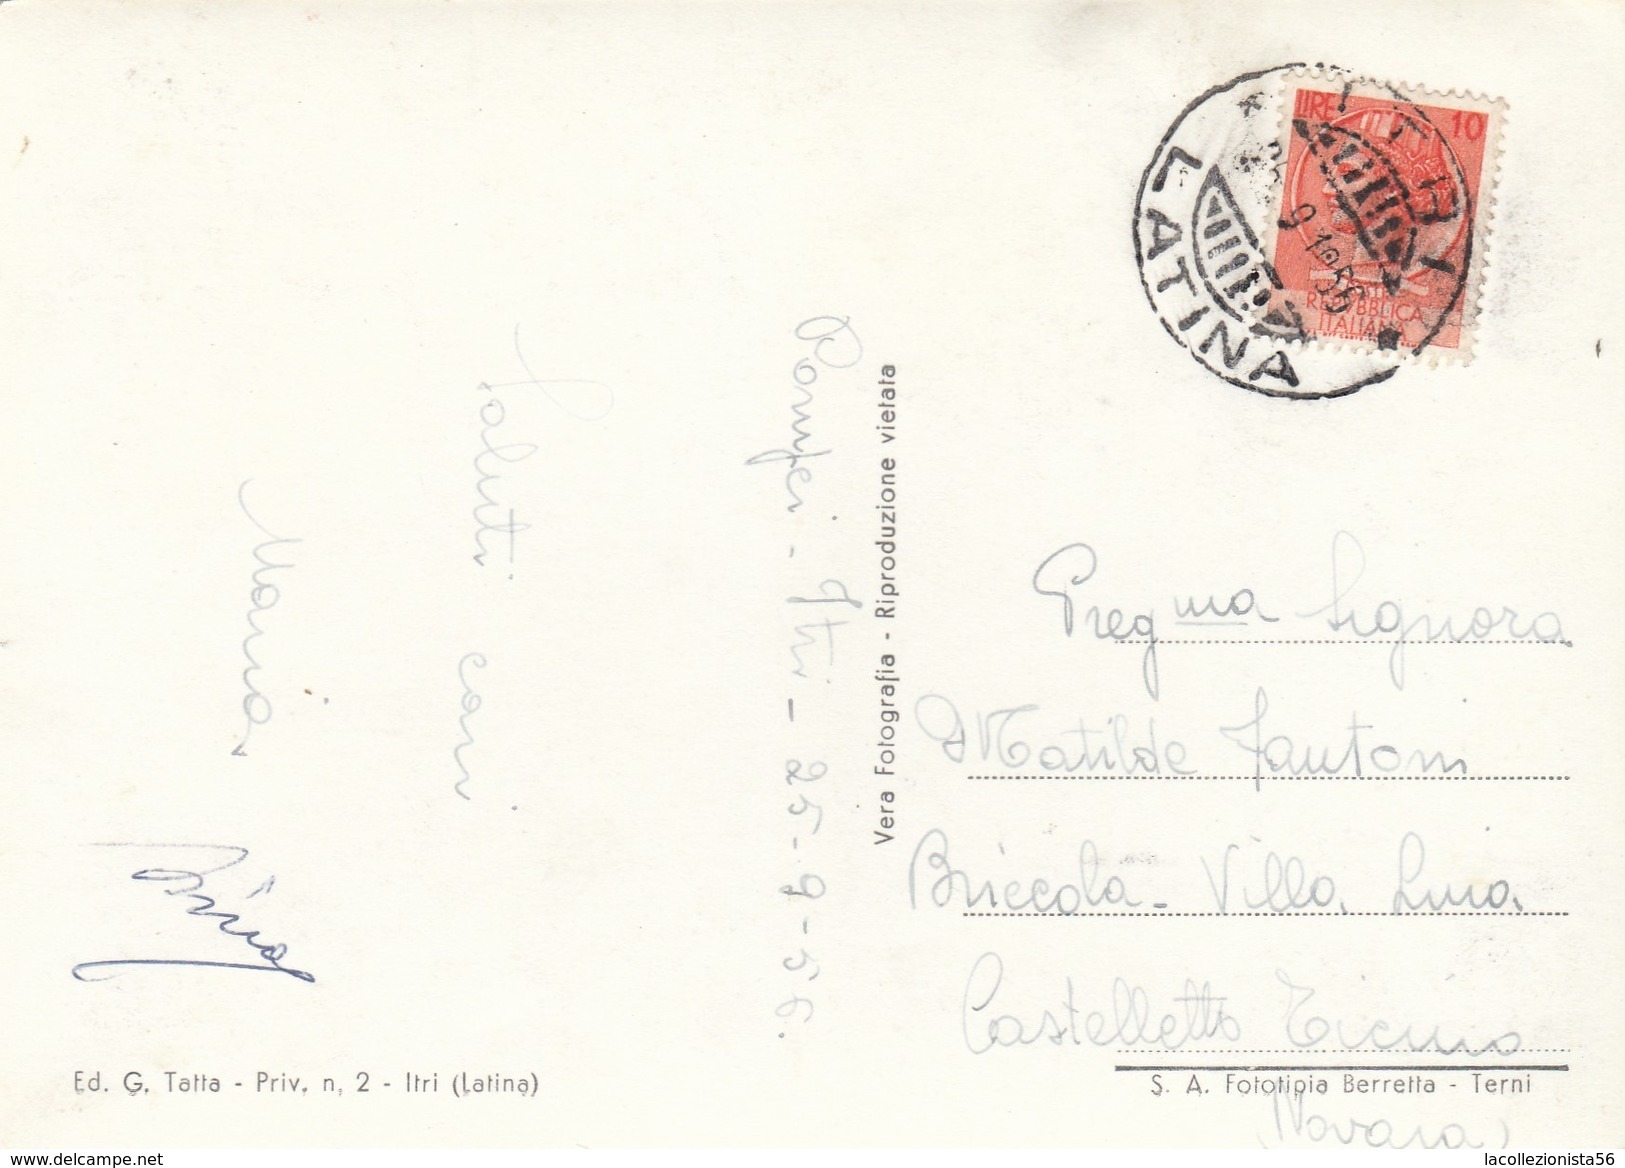 LIRE 10
POSTE
REPUBBLICA
ITALIANA
ITRI
LATINA
9 1956
Pompei - Itri - 25-9-56.
Saluti cari
Maria
Vera Fotografia - Riproduzione vietata
Pregma Signora
Matilde Fantoni
Briccola - Villa Luia
Castelletto Ticino
(Novara)
Ed. G. Tatta - Priv. n, 2 - Itri (Latina)
S. A. Fototipia Berretta - Terni
delcampe.net
lacollezionista56